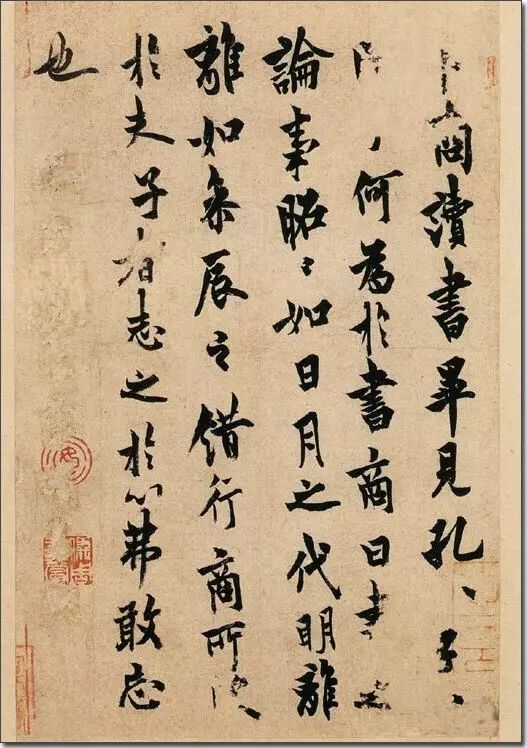 商讀書畢見孔〻子〻
問何爲於書商曰書之
論事昭〻如日月之代明離
離如參辰之錯行商所受
於夫子者志之於心弗敢忘
也